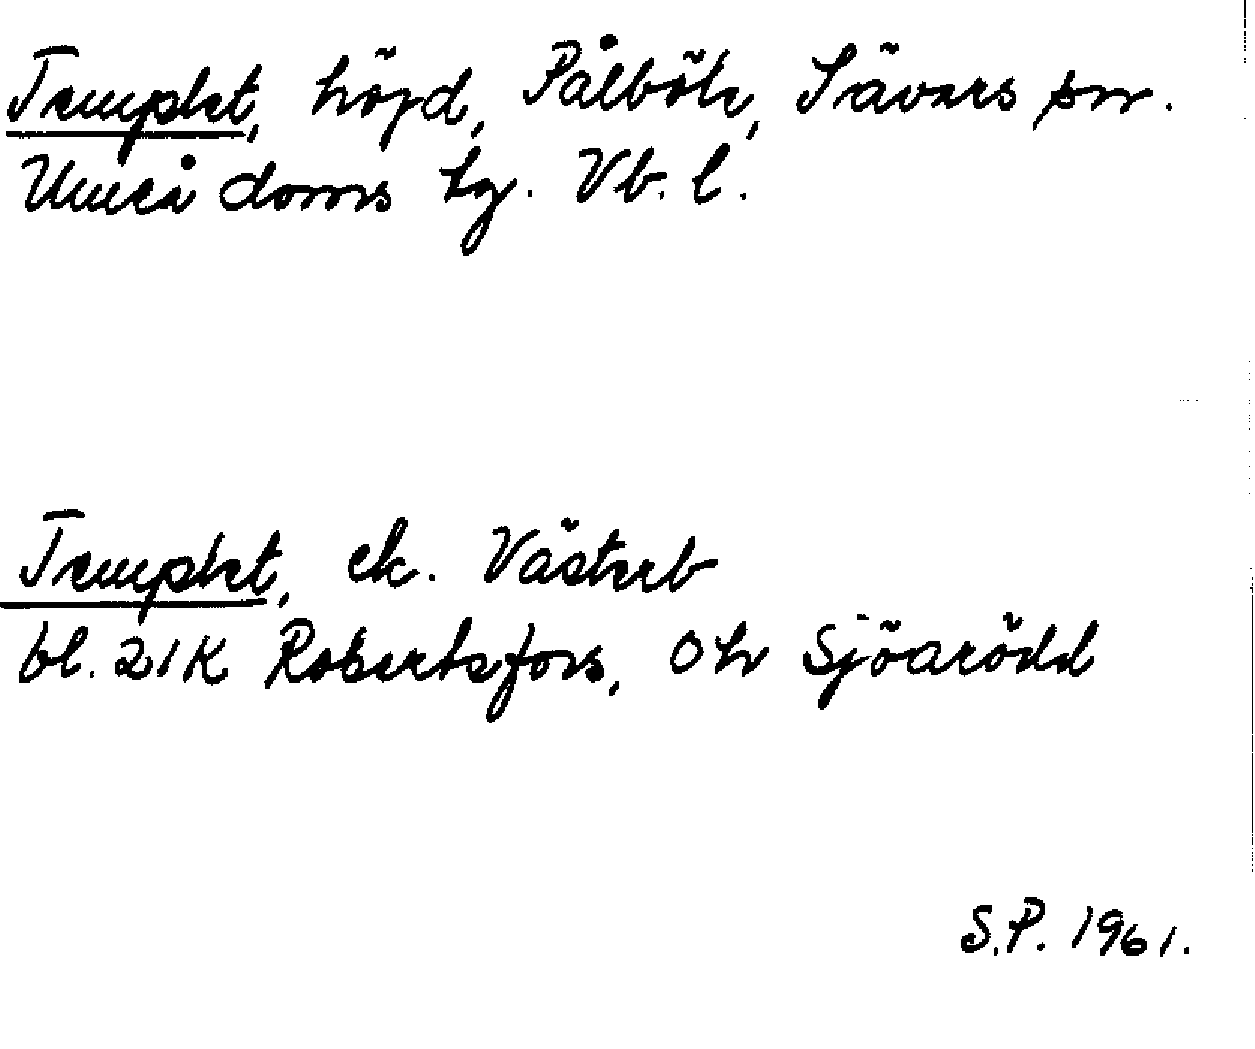 Templet, höjd, Pålböle, Sävars sn.
Umeå doms tg. Vb. l.
Templet, ek. Västerb
bl. 21K Robertsfors, Oh Sjöarödd
S.P. 1961.